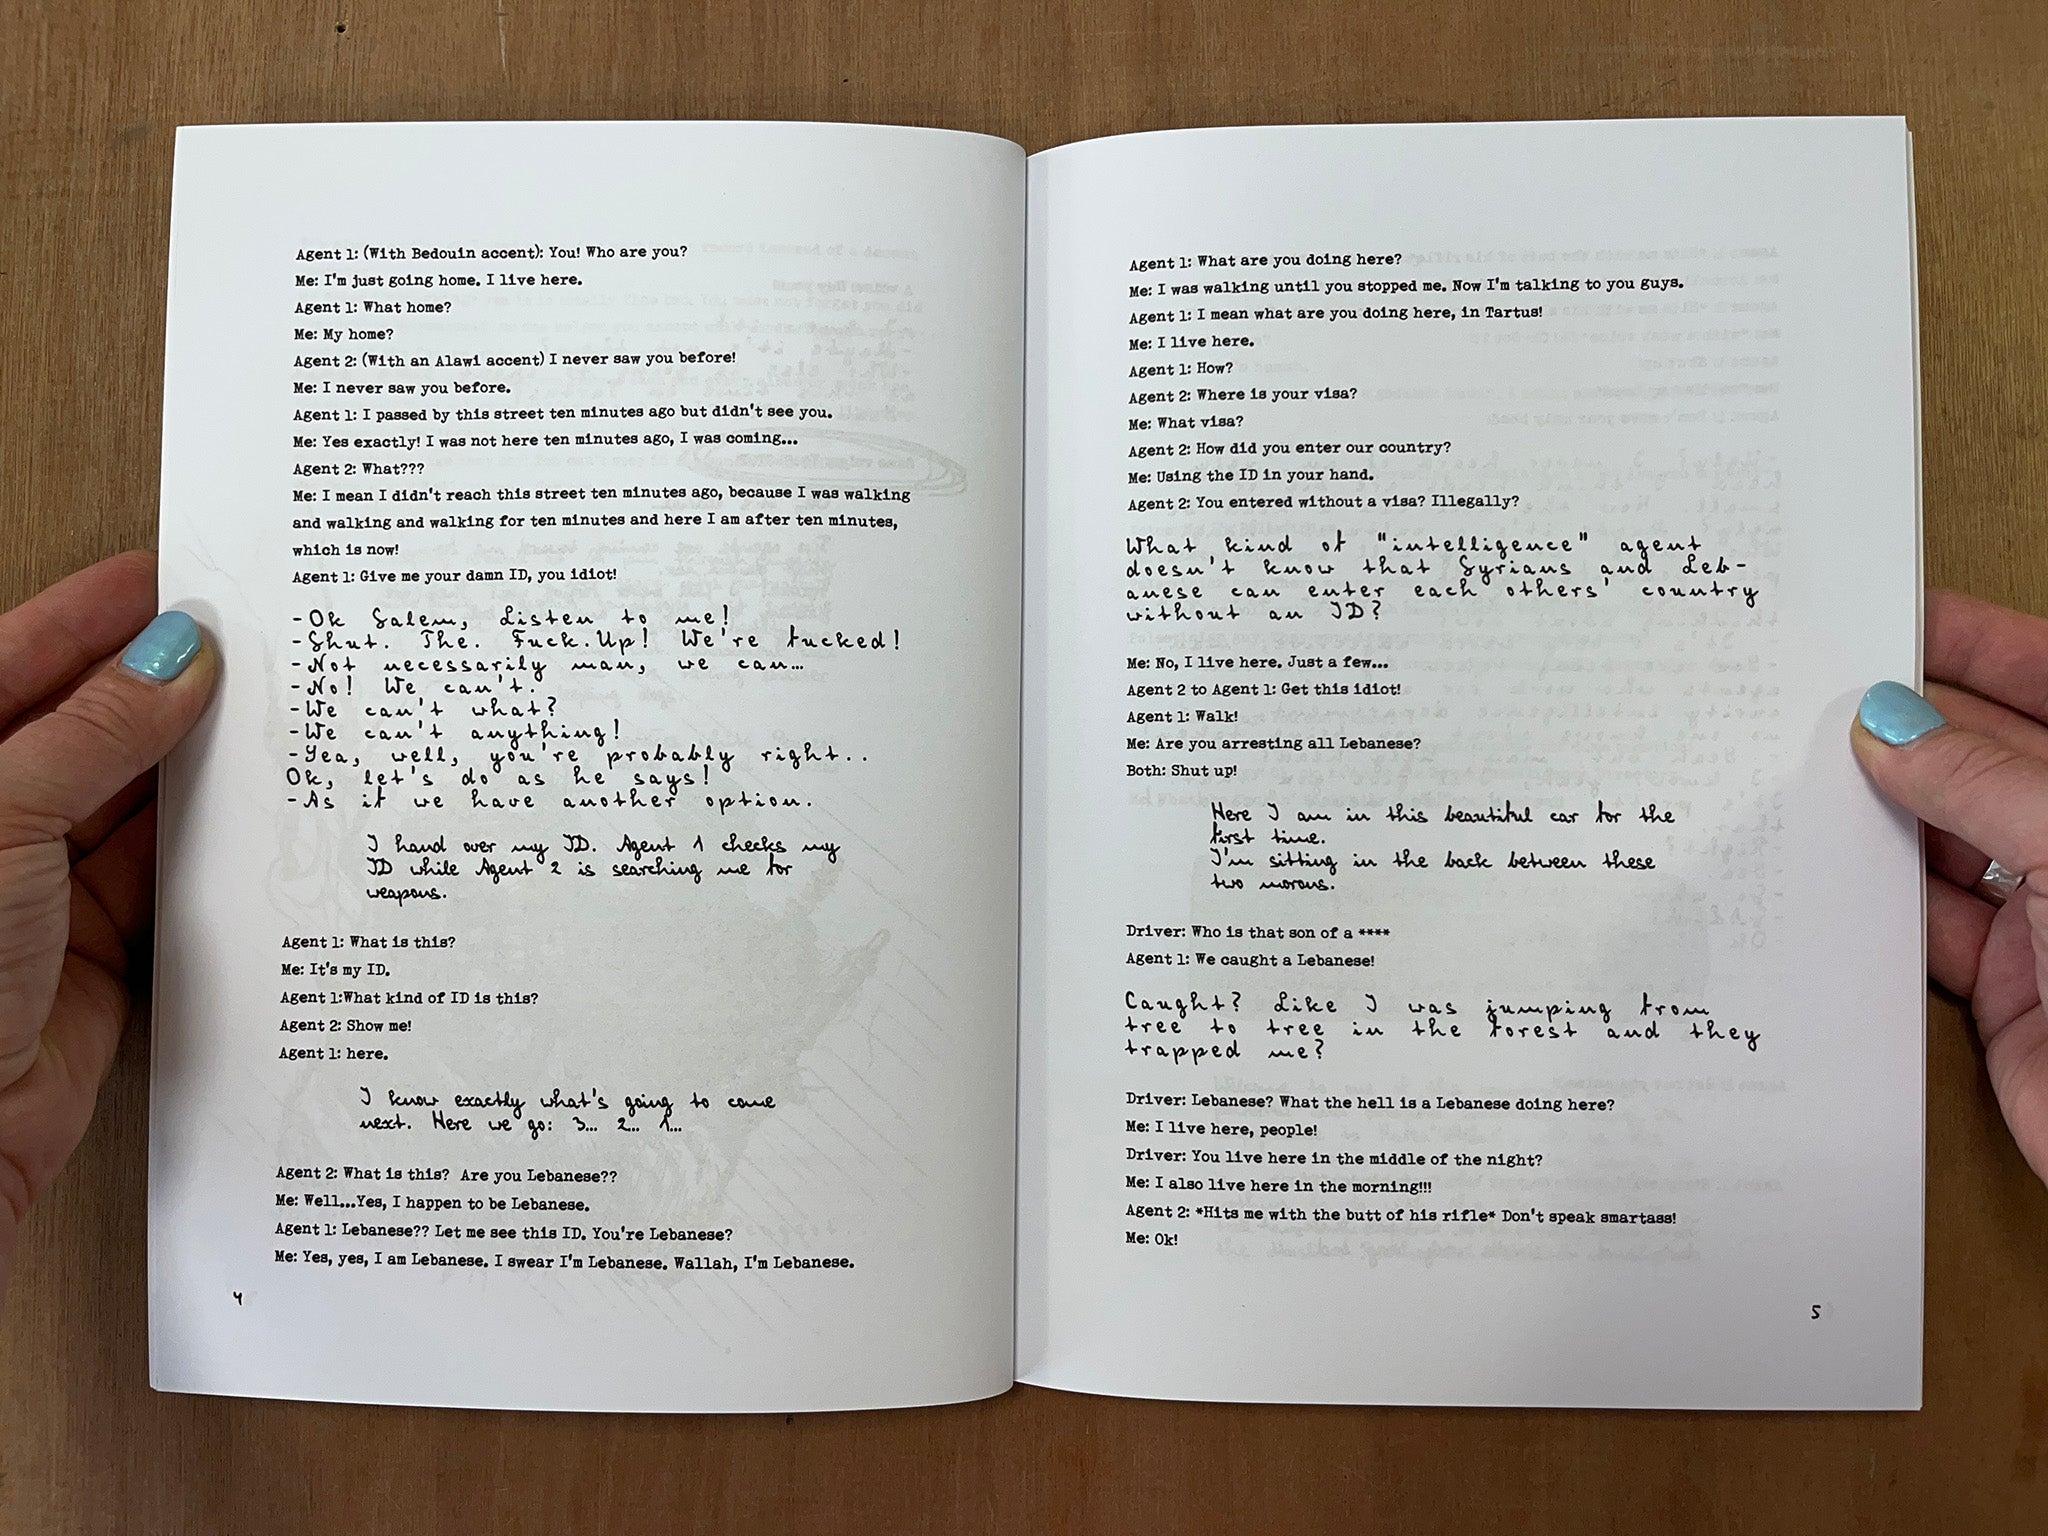 Agent 1: (With Bedouin accent): You! Who are you?
Me: I'm just going home. I live here.
Agent 1: What home?
Me: My home?
Agent 2: (With an Alawi accent) I never saw you before!
Me: I never saw you before.
Agent 1: I passed by this street ten minutes ago but didn't see you.
Me: Yes exactly! I was not here ten minutes ago, I was coming...
Agent 2: What???
Me: I mean I didn't reach this street ten minutes ago, because I was walking
and walking and walking for ten minutes and here I am after ten minutes,
which is now!
Agent 1: Give me your damn ID, you idiot!
-Ok Salem, Listen to me!
-Shut. The. Fuck.Up! We're fucked!
-Not necessarily man, we can...
-No! We can't.
-We can't what?
-We can't anything!
-Yea, well, you're probably right..
Ok, let's do as he says!
-As if we have another option.
I hand over my ID. Agent 1 checks my
ID while Agent 2 is searching me for
weapons.
Agent 1: What is this?
Me: It's my ID.
Agent 1:What kind of ID is this?
Agent 2: Show me!
Agent 1: here.
I know exactly what's going to come
next. Here we go: 3... 2... 1...
Agent 2: What is this? Are you Lebanese??
Me: Well...Yes, I happen to be Lebanese.
Agent 1: Lebanese?? Let me see this ID. You're Lebanese?
Me: Yes, yes, I am Lebanese. I swear I'm Lebanese. Wallah, I'm Lebanese.
4
Agent 1: What are you doing here?
Me: I was walking until you stopped me. Now I'm talking to you guys.
Agent 1: I mean what are you doing here, in Tartus!
Me: I live here.
Agent 1: How?
Agent 2: Where is your visa?
Me: What visa?
Agent 2: How did you enter our country?
Me: Using the ID in your hand.
Agent 2: You entered without a visa? Illegally?
What kind of "intelligence" agent
doesn't know that Syrians and Leb-
anese can enter each others' country
without an ID?
Me: No, I live here. Just a few...
Agent 2 to Agent 1: Get this idiot!
Agent 1: Walk!
Me: Are you arresting all Lebanese?
Both: Shut up!
Here I am in this beautiful car for the
first time.
I'm sitting in the back between these
two morons.
Driver: Who is that son of a ****
Agent 1: We caught a Lebanese!
Caught? Like I was jumping from
tree to tree in the forest and they
trapped me?
Driver: Lebanese? What the hell is a Lebanese doing here?
Me: I live here, people!
Driver: You live here in the middle of the night?
Me: I also live here in the morning!!!
Agent 2: *Hits me with the butt of his rifle* Don't speak smartass!
Me: Ok!
5